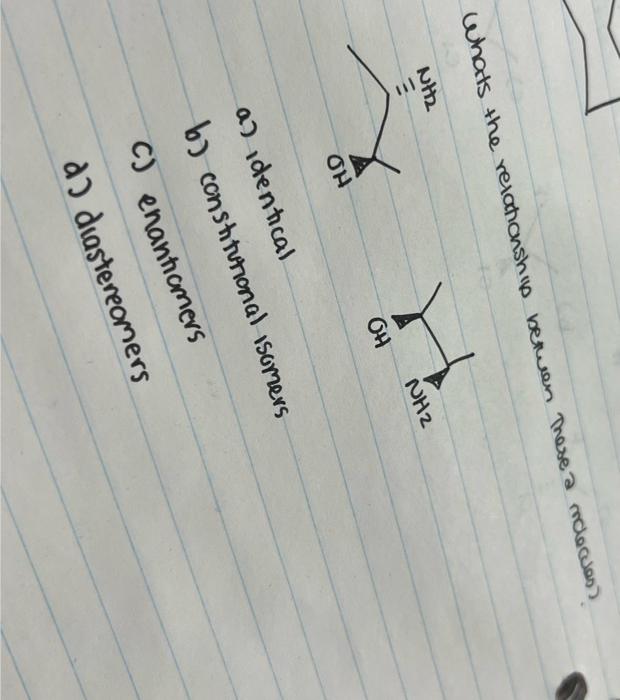 Whats the relationship between these 2 molecules?
NH2
OH
OH
NH2
a) identical
b) constitutional isomers
c) enantiomers
d) diastereomers